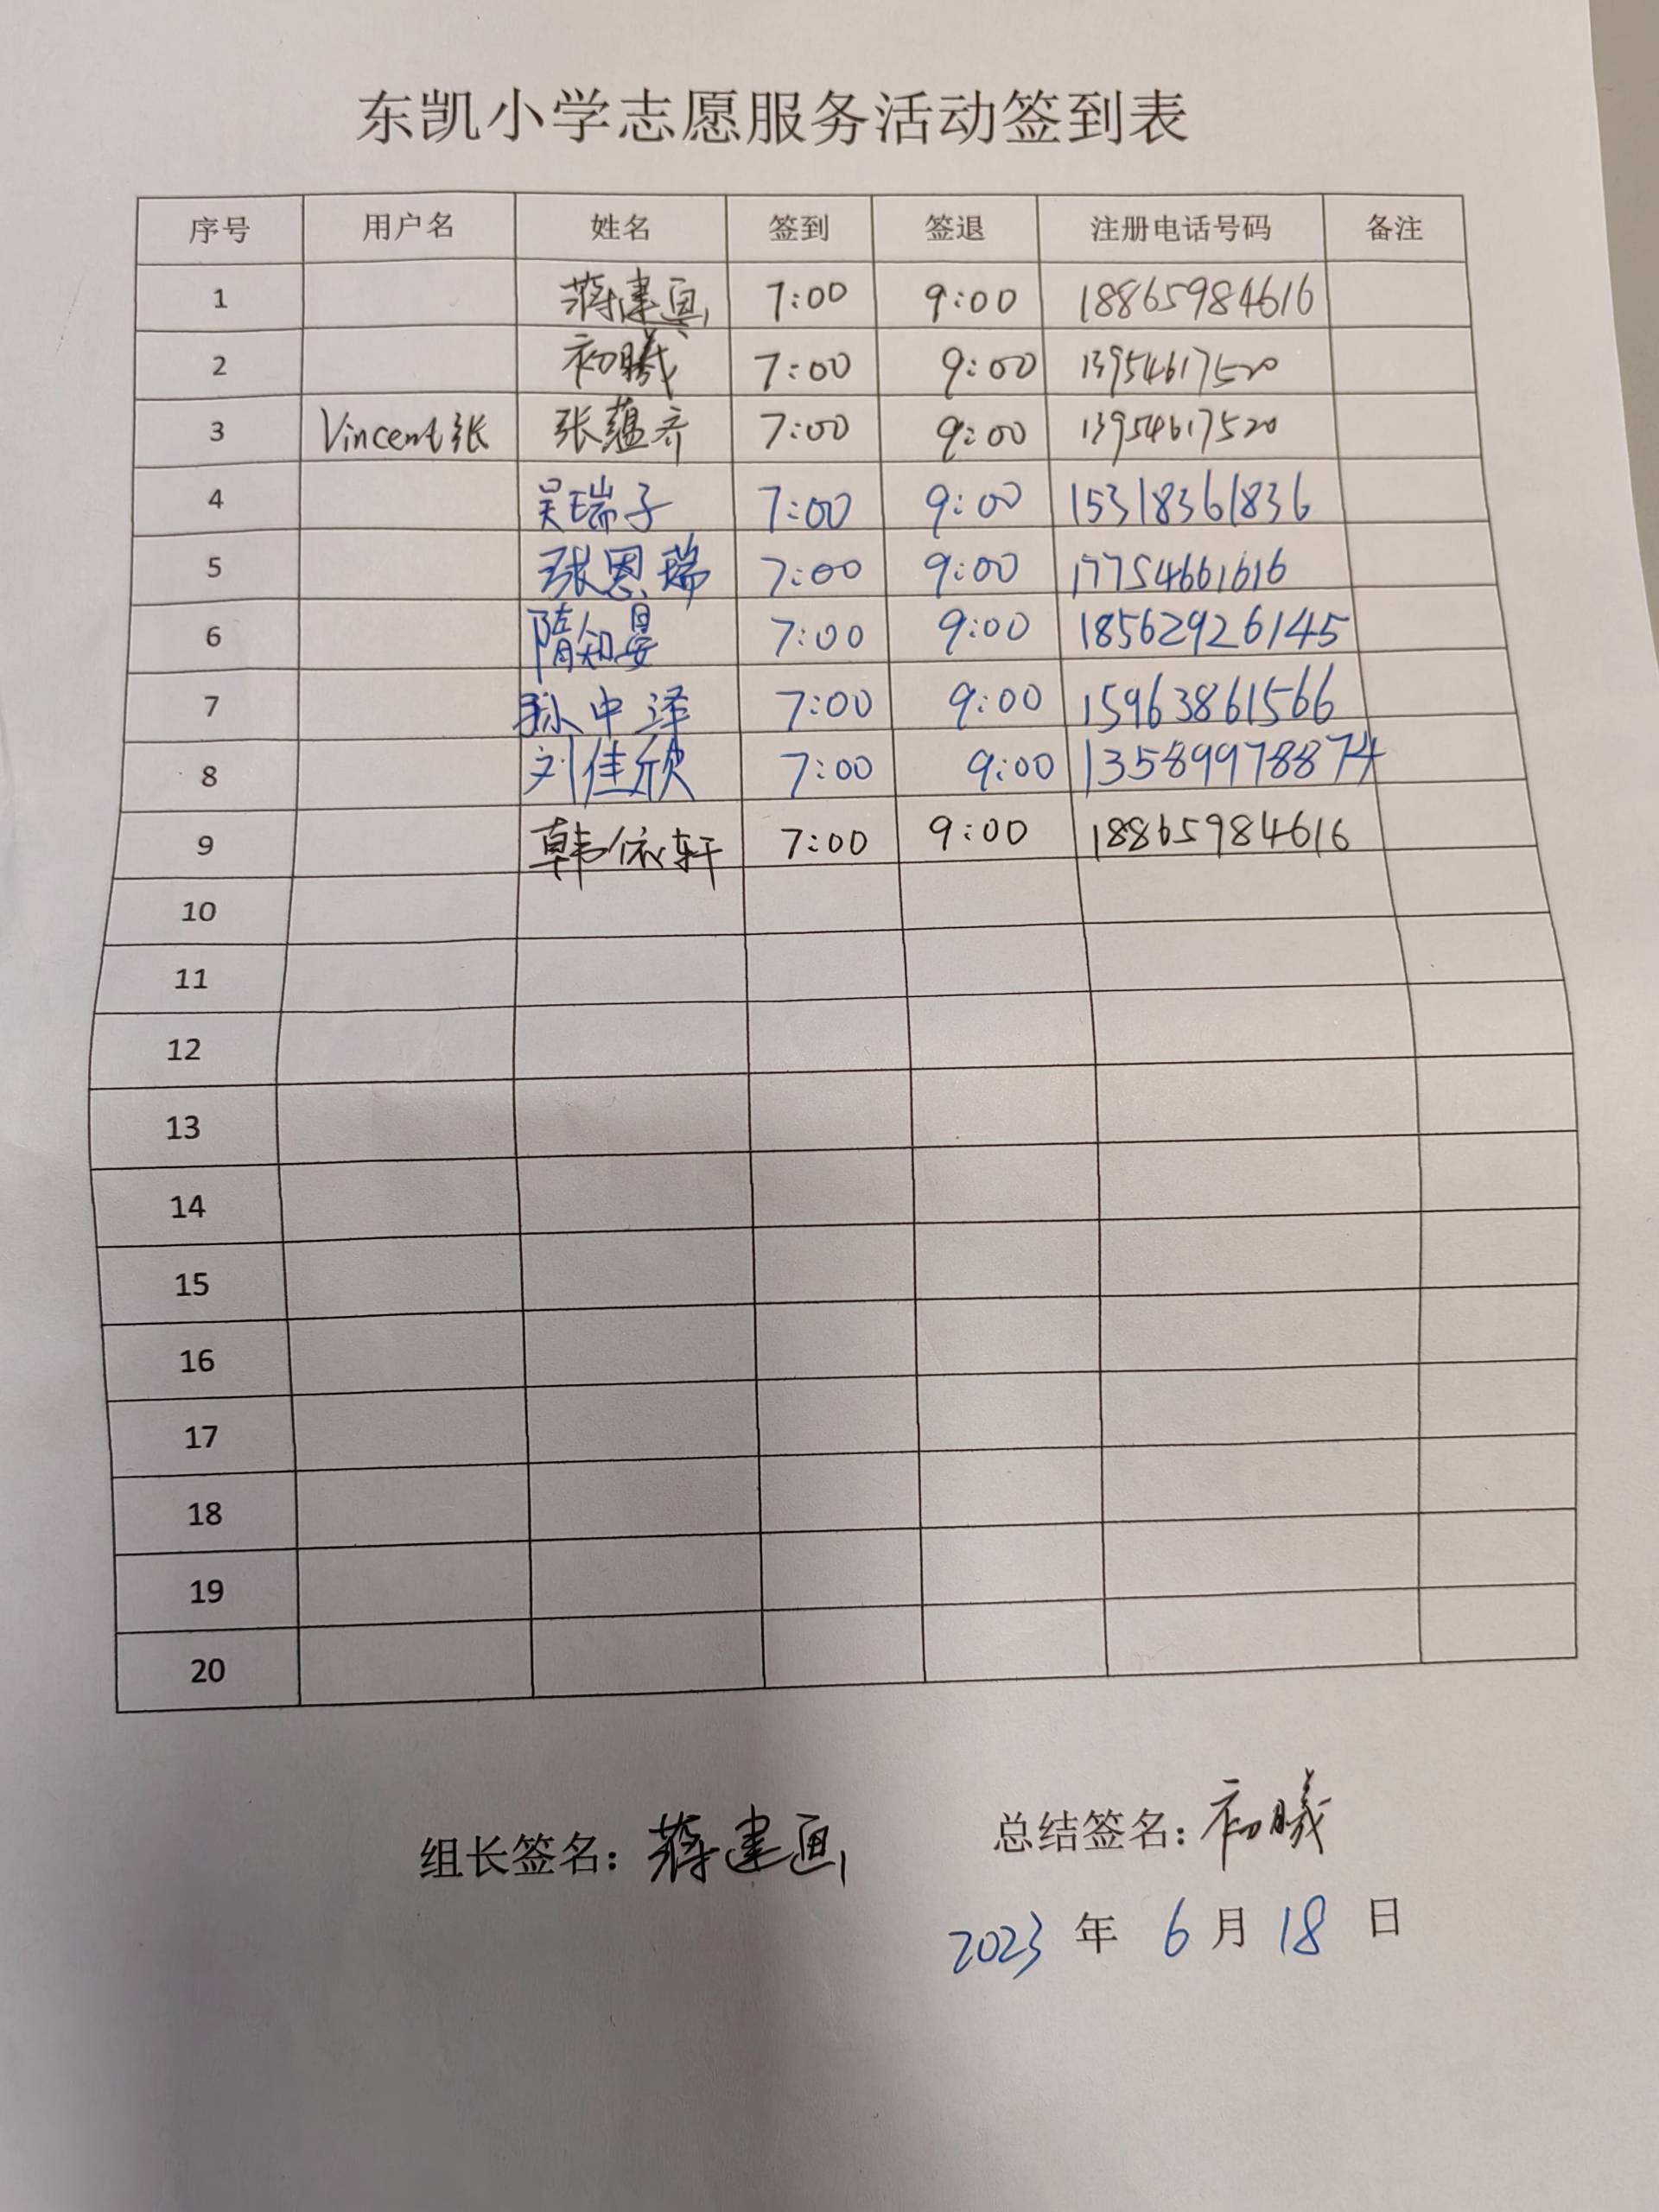 东凯小学志愿服务活动签到表
序号 用户名 姓名 签到 签退 注册电话号码 备注
1 蒋建画 7:00 9:00 18865984616
2 初曦 7:00 9:00 13954617520
3 Vincent张 张蕴齐 7:00 9:00 13954617520
4 吴瑞子 7:00 9:00 15318361836
5 张恩瑞 7:00 9:00 17754661616
6 隋知晏 7:00 9:00 18562926145
7 孙中泽 7:00 9:00 15963861566
8 刘佳欣 7:00 9:00 13589978874
9 韩依轩 7:00 9:00 18865984616
10
11
12
13
14
15
16
17
18
19
20
组长签名：蒋建画 总结签名：初曦
2023 年 6 月 18 日